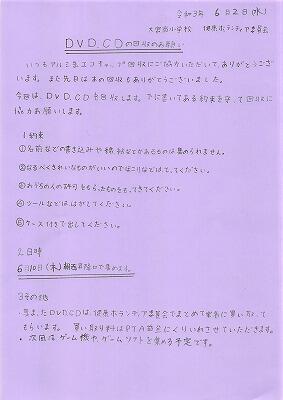 令和3年 6月2日(水)
大宮南小学校 健康ボランティア委員会
DVD,CDの回収のお願い
いつもアルミ缶、エコキャップ回収にご協力いただいて、ありがとうござい
ます。また先日は本の回収もありがとうございました。
今回は、DVD,CDを回収します。下に書いてある約束を守って回収に
ご協力お願いします。
1 約束
①名前などの書き込みや線などがあるものは集められません。
②なるべくきれいなものがいいのでほこりなどはとってください。
③おうちの人の許可をもらったものをもってきてください。
④シールなどははがしてください。
⑤ケース付きで出してください。
2 日時
6月10日(木)朝 昇降口で集めます。
3 その他
・集まったDVD,CDは、健康ボランティア委員会でまとめて業者に買い取って
もらいます。 買い取り料はPTA資金にくりいれさせていただきます。
・次回はゲーム機やゲームソフトを集める予定です。